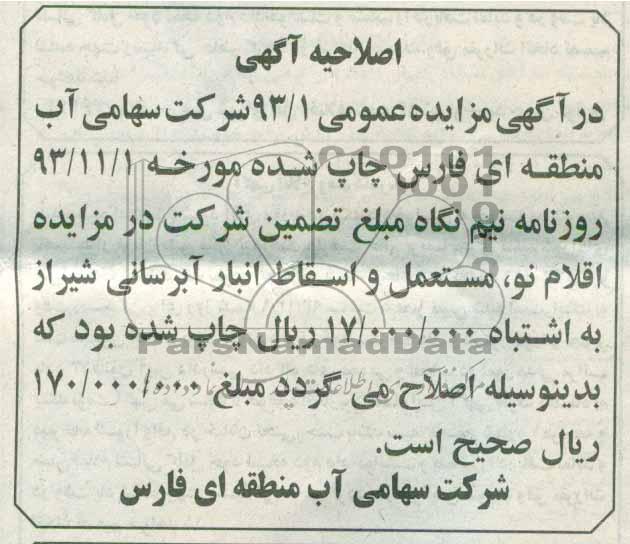 اصلاحیه آگهی
در آگهی مزایده عمومی ۹۳/۱ شرکت سهامی آب
منطقه ای فارس چاپ شده مورخه ۹۳/۱۱/۱
روزنامه نیم نگاه مبلغ تضمین شرکت در مزایده
اقلام نو، مستعمل و اسقاط انبار آبرسانی شیراز
به اشتباه ۱۷/۰۰۰/۰۰۰ ریال چاپ شده بود که
ParsNamadData
بدینوسیله اصلاح می گردد مبلغ ۱۷۰/۰۰۰/۰۰۰
ریال صحیح است.
شرکت سهامی آب منطقه ای فارس